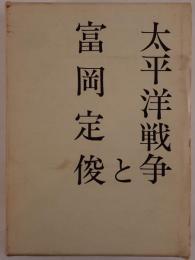 太平洋戦争
と
富岡定俊